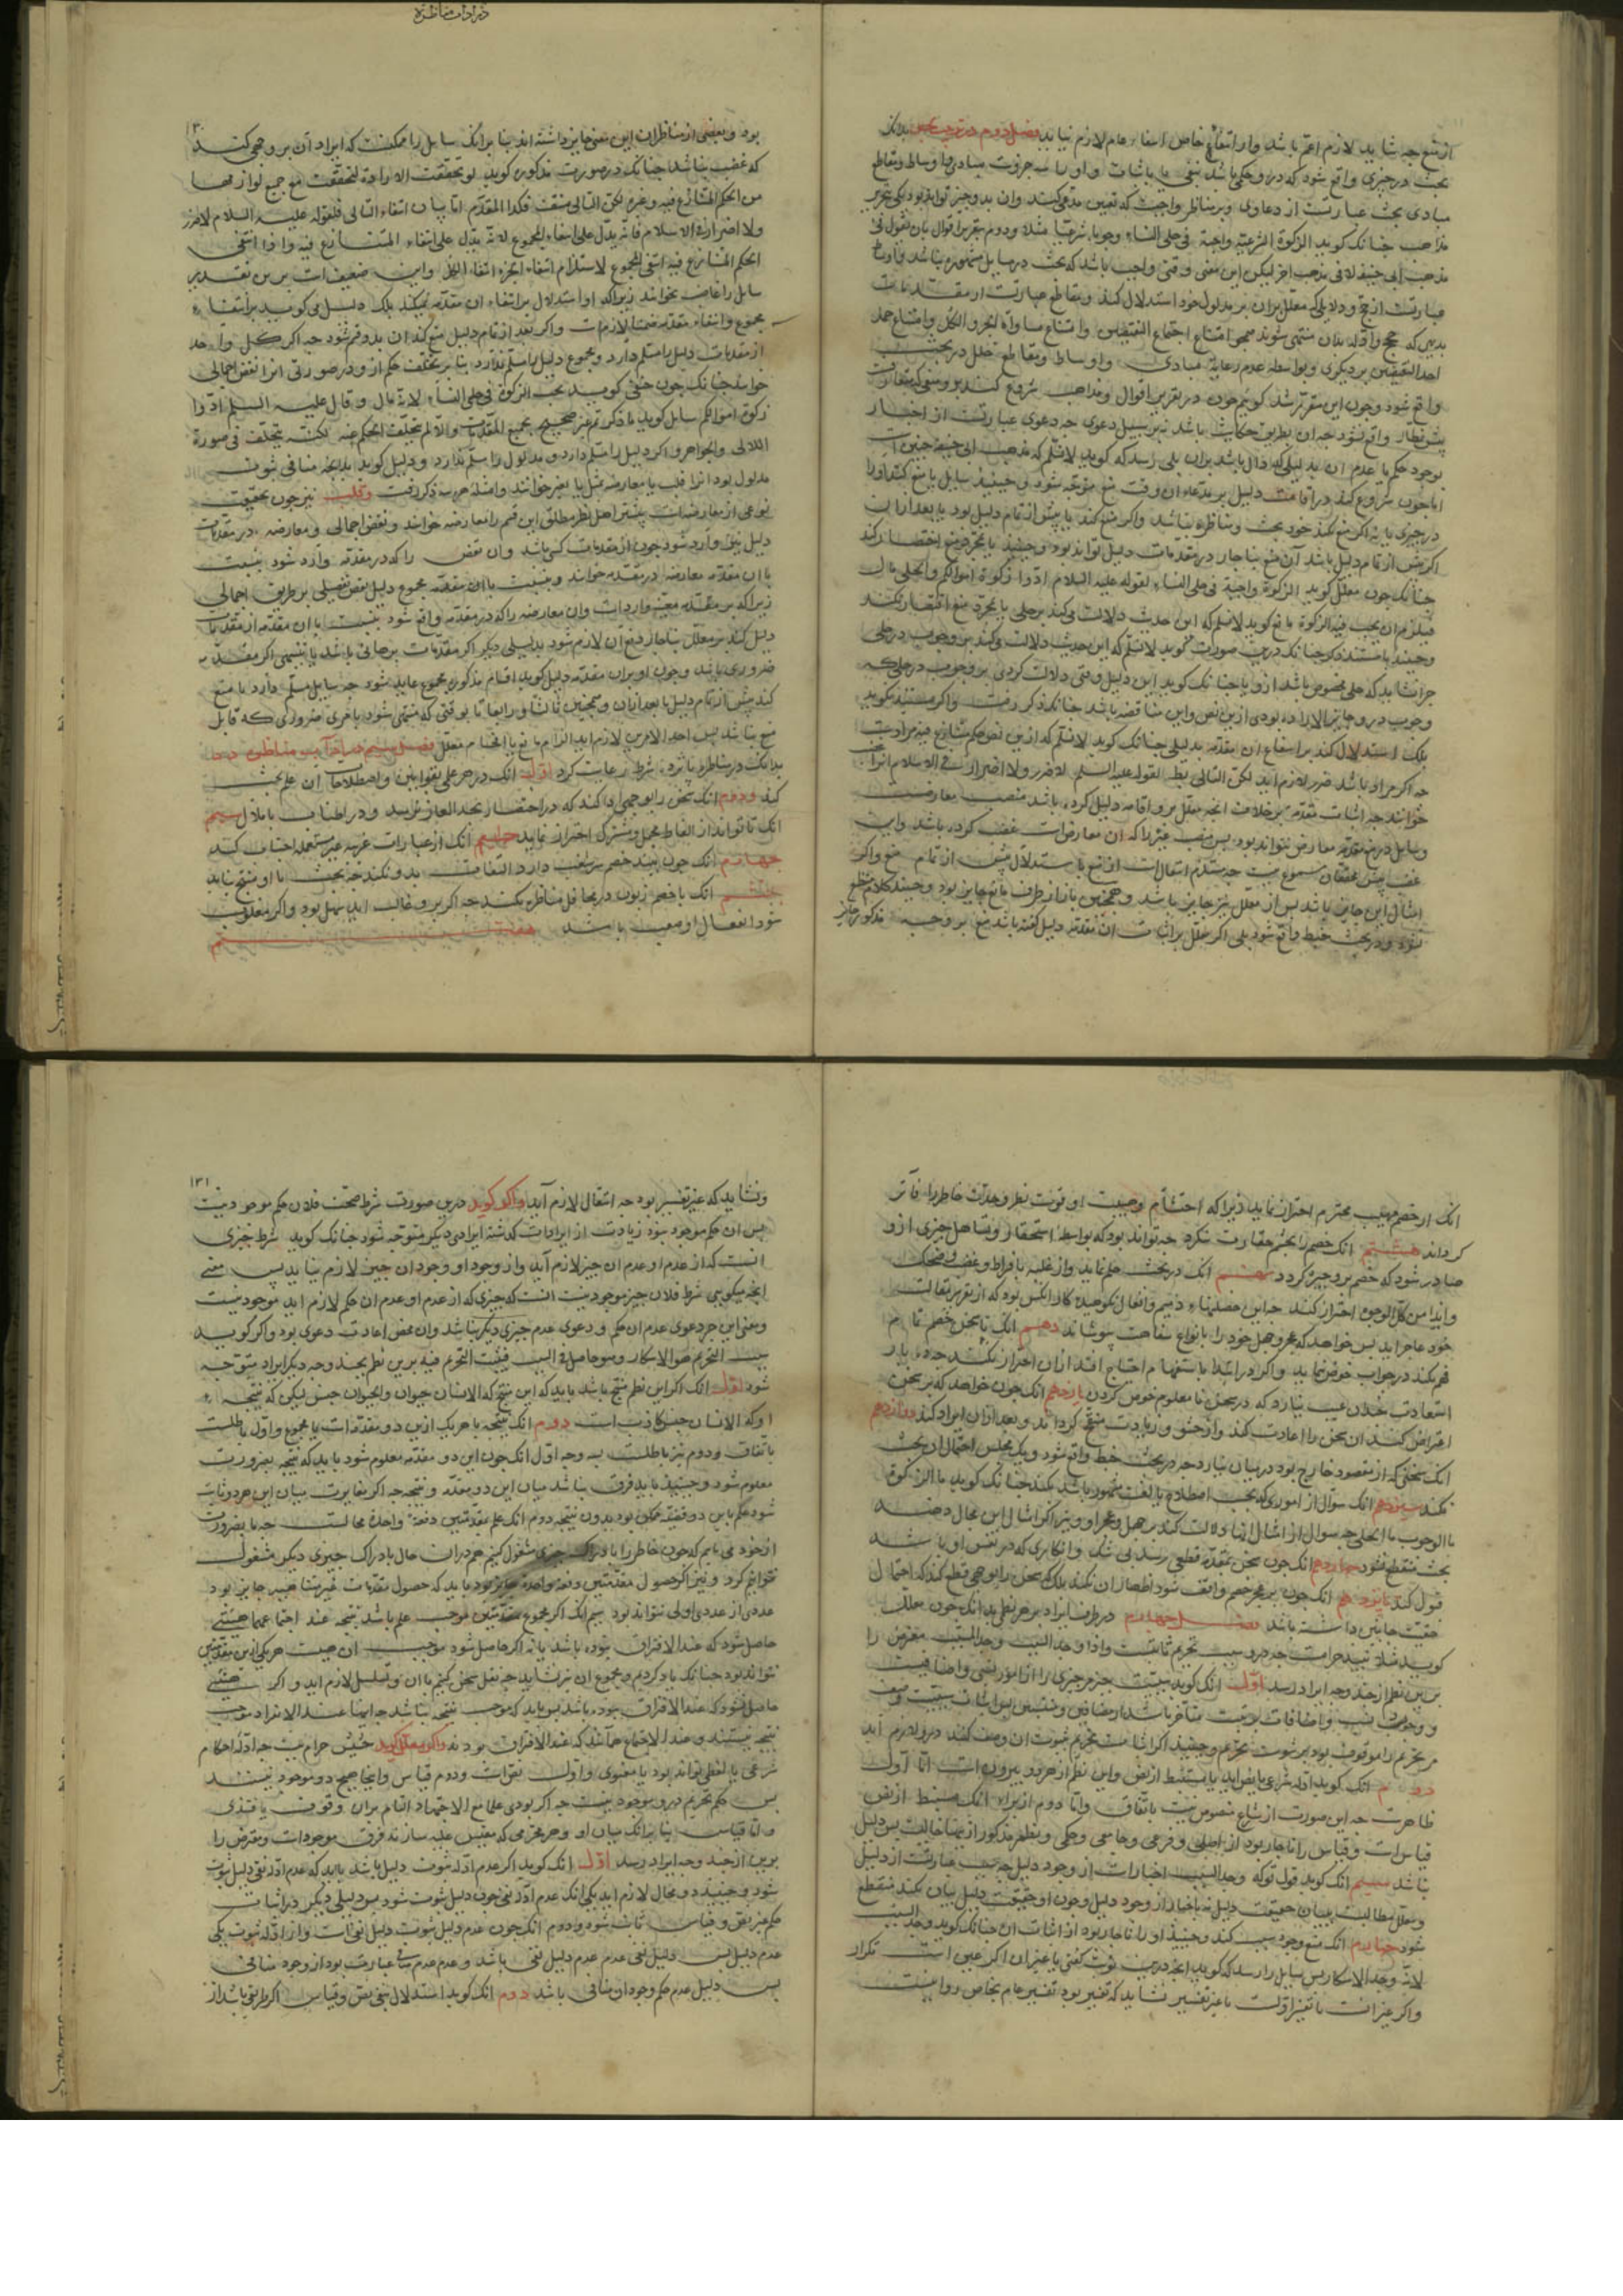 در آداب مناظره
از منع چه شاید لازم اعم باشد و از انتفاء خاص انتفاء عام لازم نیاید فصل دوم در ترتیب بحث بدانک
بحث در چیزی واقع شود که درو حکمی باشد بنفی یا باثبات و او را سه جزوست مبادی و اوساط و مقاطع
مبادی بحث عبارتست از دعاوی و بر مناظر واجبست که تعیین مدعی کند و آن بدو چیز تواند بود یکی تحریر
مذاهب چنانک کوید الزکوة الشرعیة واجبة فی حلی النساء وجوبا شرعیا مثلا و دوم تقریر اقوال بان یقول فی
مذهب ابی حنیفه لا فی مذهب آخر لیکن این معنی وقتی واجب باشد که بحث در مسایل مشهوره نباشد و اوساط
عبارتست از حجج و دلایل که معلل بران بر مدلول خود استدلال کند و مقاطع عبارتست از مقدماتیست
بدیهی که حجج و ادله بدان منتهی شوند همچو امتناع اجتماع النقیضین و امتناع مساواة الجزو الکل و امتناع حمل
احد النقیضین بر دیکری و بواسطه عدم رعایة مبادی و اوساط و مقاطع خلل در بحث
واقع شود و چون این مقرر شد کوییم چون در تقریر اقوال و مذاهب شروع کند برو منعی که متعارفست
پیش نظار واقع نشود چه آن بطریق حکایت باشد نه بر سبیل دعوی چه دعوی عبارتست از اخبار
بوجود حکم یا عدم آن بدلیلی که دال باشد بران بلی رسد که کوید لا نسلم که مذهب ابی حنیفه چنین است
اما چون شروع کند در اقامت دلیل بر مدعا آن وقت منع متوجه شود و حینیذ سایل یا منع کند او را
در چیزی یا نه اکر منع نکند خود بحث و مناظره نباشد و اکر منع کند یا پیش از تمام دلیل بود یا بعد از آن
اکر پیش از تمام دلیل باشد آن منع بناچار در مقدمات دلیل تواند بود و حینیذ یا بمجرد منع اختصار کند
چنانک چون معلل کوید الزکوة واجبة فی حلی النساء لقوله علیه السلام ادوا زکوة اموالکم و الحلی مال
فیلزم ان یجب فیه الزکوة مانع کوید لا نسلم که این حدیث دلالت میکند بر حلی یا بمجرد منع اقتصار نکند
و حینیذ یا مستند ذکر چنانک درین صورت کوید لا نسلم که این حدیث دلالت میکند بر وجوب در حلی
چرا نشاید که حلی مخصوص باشد ازو یا چنانک کوید این دلیل وقتی دلالت کردی بر وجوب در حلی که
وجوب درو جایز الارادة بودی ازین نص و این مناقضه باشد چنانک ذکر رفت و اکر مستند نکوید
بلک استدلال کند بر انتفاع آن مقدمه بدلیلی چنانک کوید لا نسلم که ازین نص حکم متنازع فیه مرادست
چه اکر مراد باشد ضرر لازم آید لکن التالی بطل لقوله علیه السلم لا ضرر و لا اضرار فی الاسلام آنرا غصب
خوانند چه اثبات مقدمه بر خلاف آنچه معلل برو اقامه دلیل کرده باشد منصب معارضست
و سایل درین مقدمه معارض نتواند بود پس منصب غیر را که آن معارض است غصب کرده باشد و این
غصب پیش محققان مسموع نیست چه مستلزم انتقالست از منع باستدلال پیش از تمام منع و اکر
امثال این جایز باشد پس از معلل نیز جایز باشد و همچنین باز از طرف مانع جایز بود و حینیذ کلام منقطع
نشود و در بحث خبط واقع شود بلی اکر معلل بر اثبات آن مقدمه دلیل کفته باشد منع بر وجه مذکور جایز
۱۳۰
بود و بعضی از مناظران این معنی جایز داشته اند بنا برانک سایل را ممکنست که ایراد آن بر وجهی کند
که غصب نباشد چنانک در صورت مذکوره کوید لو تحققت الارادة لتحققت مع جمیع لوازمها
من الحکم المتنازع فیه و غیره لکن التالی منتف فکذا المقدم اما بیان انتفاء التالی فلقوله علیه السلام لا ضرر
و لا اضرار فی الاسلام فانه یدل علی انتفاء المجموع لانه یدل علی انتفاء المتنازع فیه و اذا انتفی
الحکم المتنازع فیه انتفی المجموع لاستلزام انتفاء الجزء انتفاء الکل و این ضعیفست برین تقدیر
سایل را غاصب نخوانند زیرا که او استدلال بر انتفاء آن مقدمه نمیکند بلک دلیل میکوید بر انتفاء
مجموع و انتفاء مقدمه ضمنا لازمست و اکر بعد از تمام دلیل منع کند آن بدو قسم شود چه اکر کل واحد
از مقدمات دلیل را مسلم دارد و مجموع دلیل را مسلم ندارد بنا بر تخلف حکم ازو در صورتی آنرا نقض اجمالی
خوانند چنانک چون حنفی کوید تجب الزکوة فی حلی النساء لانه مال و قال علیه السلم ادوا
زکوة اموالکم سایل کوید ما ذکرتم غیر صحیح بجمیع المقدمات و الا لم یتخلف الحکم عنه لکنه یتخلف فی صورة
اللالی و الجواهر و اکر دلیل را مسلم دارد و مدلول را مسلم ندارد و دلیل کوید بدانچه منافی ثبوت
مدلول بود آنرا قلب یا معارضه بمثل یا بغیر خوانند و امثله هر سه ذکر رفت و قلب نیز چون بحقیقت
نوعی از معارضه است بیشتر اهل نظر مطلق این قسم را معارضه خوانند و نقض اجمالی و معارضه در مقدمات
دلیل نیز وارد شود چون از مقدمات کسبی باشد و آن نقض را که در مقدمه وارد شود بنسبت
با آن مقدمه معارضه در مقدمه خوانند و بنسبت با آن مقدمه مجموع دلیل نقض تفصیلی بر طریق اجمالی
زیرا که بر مقدمه معینه وارداست و آن معارضه را که در مقدمه واقع شود بنسبت با آن مقدمه از مقدمات
دلیل کند بر معلل بناچار دفع آن لازم شود بدلیلی دیکر اکر مقدمات برهانی باشد یا تنبیهی اکر مقدمه
ضروری باشد و چون او بران مقدمه دلیل کوید اقسام مذکوره بمجموع عاید شود چه سایل مسلم دارد یا منع
کند پیش از تمام دلیل یا بعد از آن و همچنین ثالثا و رابعا تا بوقتی که منتهی شود بامری ضروری که قابل
منع نباشد پس احد الامرین لازم آید الزام مانع یا افحام معلل فصل سیم در آداب مناظره
بدانک در مناظره پانزده شرط رعایت کردن اول آنک در هر علمی بقوانین و اصطلاحات آن علم بحث
کند و دوم آنک سخن را بوجهی ادا کند که در اختصار بحد الغاز نرسد و در اطناب باملال سیم
آنک تا تواند از الفاظ مجمل و مشترک احتراز نماید چهارم آنک از عبارات غریبه غیر مستعمله اجتناب کند
آنک چون بیند خصم بشغب دارد التفات بدو نکند چه بحث با او منتج نیاید
ششم آنک با خصم زبون در محافل مناظره نکند چه اکر برو غالب آید سهل بود و اکر مغلوب
شود انفعال او صعب باشد هفتم
آنک از خصم مهیب محترم احتراز نماید زیرا که احتشام و هیبت او قوت نظر و حدت خاطر را فاتر
کرداند هشتم آنک خصم را بچشم حقارت ننکرد چه تواند بود که بواسطه استحقار و تساهل چیزی ازو
صادر شود که خصم برو چیره کردد نهم آنک در بحث حلم نماید و از غلبه بافراط و غضب و ضحک
و ایذا من کل الوجوه احتراز کند چه این خصلتهاء ذمیم و افعال نکوهیده کار آنکس بود که از تقریر مقالت
خود عاجز آید پس خواهد که عجز و جهل خود را بانواع سفاهت بپوشاند دهم آنک تا سخن خصم تمام
فهم نکند در جواب خوض ننماید و اکر در اثنا باستفهام احتیاج افتد از آن احتراز نکند چه دوباره
استعادت سخن عیب نیارد که در سخن نامعلوم خوض کردن یازدهم آنک چون خواهد که بر سخنی
اعتراض کند آن سخن را اعادت کند و از حشو و زیادت منقح کرداند و بعد از آن ایراد کند دوازدهم
آنک سخنی که از مقصود خارج بود در میان نیارد چه در بحث خبط واقع شود و یک مجلس احتمال آن بحث
نکند سیزدهم آنک سؤال از اموری که بحسب اصطلاح یا لغت مشهور باشد نکند چنانک کوید ما الزکوة
ما الوجوب ما الحلی چه سؤال از امثال اینها دلالت کند بر جهل و عجز او و نیز اکر امثال این مجال دهند
بحث منقطع نشود چهاردهم آنک چون سخن بمقدمه قطعی رسد بی شک و انکاری که در نفس او باشد
قبول کند پانزدهم آنک چون بر عجز خصم واقف شود اظهار آن نکند بلک سخن را بوجهی قطع کند که احتمال
حقیت جانبین داشته باشد فصل چهارم در طرف ایراد بر هر نظمی بدانک چون معلل
کوید مثلا نبیذ حرامست چه درو سبب تحریم ثابتست و اذا وجد السبب وجد المسبب معترض را
برین نظم از چند وجه ایراد رسد اول آنک کوید سببیت چیزی مر چیزی را از امور نسبی و اضافیست
و وجود نسب و اضافات بوجود متأخر باشد از مضافین و منتسبین پس اثبات سببیت وصف
مر تحریم را موقوف بود بر ثبوت تحریم و حینیذ اکر اثبات تحریم بثبوت آن وصف کنند دور لازم آید
دوم آنک کوید ادله شرعی یا نص اید یا مستنبط از نص و این نظم از هر دو بیرون است اما اول
ظاهرست چه این صورت از شارع منصوص نیست باتفاق و اما دوم از براء آنک مستنبط از نص
قیاس است و قیاس را ناچار بود از اصلی و فرعی و جامعی و حکمی و نظم مذکور ازینها خالیست پس دلیل
نباشد سیم آنک کوید قول تو که وجد السبب اخبار است از وجود دلیل چه سبب عبارتست از دلیل
و معلل مطالبست ببیان حقیقت دلیل نه باخبار از وجود دلیل و چون او حقیقت دلیل بیان نکند منقطع
شود چهارم آنک منع وجود سبب کند و حینیذ او را ناچار بود از اثبات آن چنانک کوید وجد السبب
لانه وجد الاسکار پس سایل را رسد که کوید آنچه درین نوبت کفتی یا عین آن اکر عین است تکرار
و اکر غیر آنست یا تفسیر اولست یا غیر تفسیر نشاید که تفسیر بود تفسیر عام بخاص روا نیست
۱۳۱
و نشاید که غیر تفسیر بود چه انتقال لازم آید و اکر کوید درین صورت شرط صحت فلان حکم موجود نیست
پس آن حکم موجود نبود زیادت از ایرادات کذشته ایرادی دیکر متوجه شود چنانک کوید شرط چیزی
آنست که از عدم او عدم آن چیز لازم آید و از وجود او وجود آن چیز لازم نیاید پس معنی
آنچه میکویی شرط فلان چیز موجود نیست آنست که چیزی که از عدم او عدم آن حکم لازم آید موجود نیست
و معنی این جز دعوی عدم آن حکم و دعوی عدم چیزی دیکر نباشد و آن محض اعادت دعوی بود و اکر کوید
سبب التحریم هو الاسکار و هو حاصل فی النبیذ فیثبت التحریم فیه برین نظم بچند وجه دیکر ایراد متوجه
شود اول آنک اکر این نظم منتج باشد باید که این منتج که الانسان حیوان و الحیوان جنس لیکن که نتیجه
او که الانسان جنس کاذب است دوم آنک نتیجه یا هر یک ازین دو مقدمه است یا مجموع و اول باطلست
باتفاق و دوم نیز باطلست بسه وجه اول آنک چون این دو مقدمه معلوم شود باید که نتیجه بضرورت
معلوم شود و حینیذ باید فرق نباشد میان این دو مقدمه و نتیجه چه اکر مغایرت میان این هر دو ثابت
شود علم باین دو قضیه ممکن بود بدون نتیجه دوم آنک علم بمقدمتین دفعة واحدة محالست چه ما بضرورت
از خود می یابیم که چون خاطر را بادراک چیزی مشغول کنیم هم در آن حال بادراک چیزی دیکر مشغول
نتوانیم کرد و نیز اکر حصول مقدمتین دفعة واحدة جایز بود باید که حصول مقدمات غیر متناهیه جایز بود
عددی از عددی اولی نتواند بود سیم آنک اکر مجموع مقدمتین موجب علم باشد نتیجه عند اجتماعهما هیئتی
حاصل شود که عند الافتراق نبوده باشد یا نه اکر حاصل شود موجب آن هیئت هر یکی ازین مقدمتین
نتواند بود چنانک یاد کردیم و مجموع آن نیز نشاید چه نقل سخن کنیم با آن و تسلسل لازم آید و اکر هیئتی
حاصل نشود که عند الافتراق نبوده باشد پس باید که موجب نتیجه نباشد چه اینها عند الانفراد موجب
نتیجه نیستند و عند الاجتماع همانند که عند الافتراق بودند و اکر معلل کوید حشیش حرام نیست چه ادله احکام
شرعی یا لفظی تواند بود یا معنوی و اول نص است و دوم قیاس و اینجا هیچ دو موجود نیستند
پس حکم تحریم درو موجود نیست چه اکر بودی علما مع الاجتهاد التام بران وقوف یافتندی
و اما قیاس بنا برانک میان او و هر محرمی که مقیس علیه سازند فرق موجوداست و معترض را
برین از چند وجه ایراد رسد اول آنک کوید اکر عدم ادله ثبوت دلیل باشد باید که عدم ادله نفی دلیل ثبوت
شود و حینیذ دو محال لازم آید یکی آنک عدم ادله نفی چون دلیل ثبوت شود پس دلیلی دیکر در اثبات
حکم غیر نص و قیاس ثابت شود و دوم آنک چون عدم دلیل ثبوت دلیل نفی است و از ادله ثبوت یکی
عدم دلیل نفی پس دلیل نفی عدم عدم دلیل نفی باشد و عدم عدم شی عبارتست بود از وجود منافی
پس دلیل عدم حکم وجود آن منافی باشد دوم آنک کوید استدلال بنفی نص و قیاس اکر طریقی باشد از